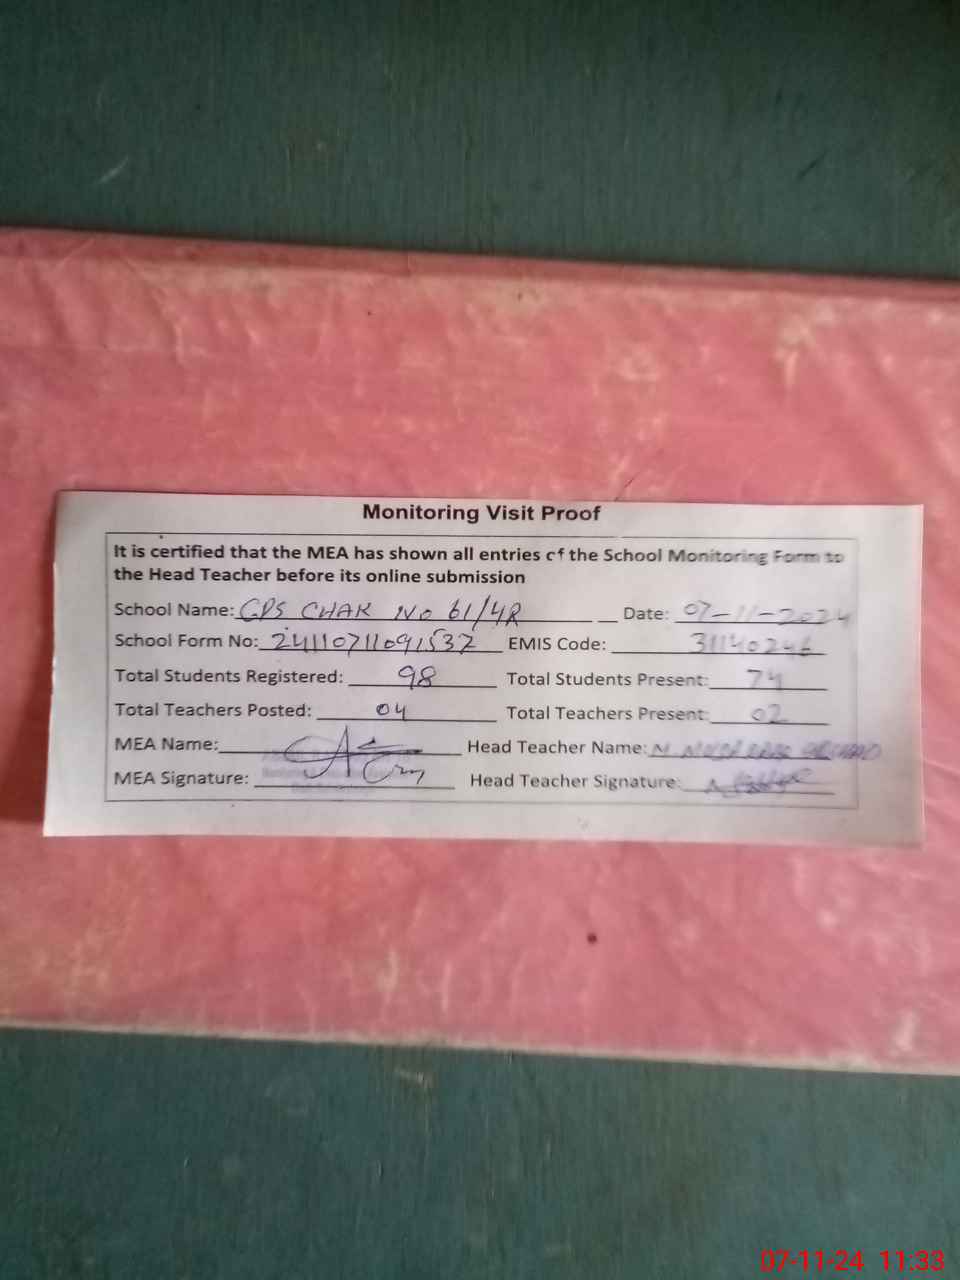 Monitoring Visit Proof
It is certified that the MEA has shown all entries of the School Monitoring Form to
the Head Teacher before its online submission
School Name: GPS CHAK NO 61/4R Date: 07-11-2024
School Form No: 24110711091537 EMIS Code: 31140246
Total Students Registered: 98 Total Students Present: 74
Total Teachers Posted: 04 Total Teachers Present: 02
MEA Name: Head Teacher Name:
MEA Signature: Head Teacher Signature:
07-11-24 11:33